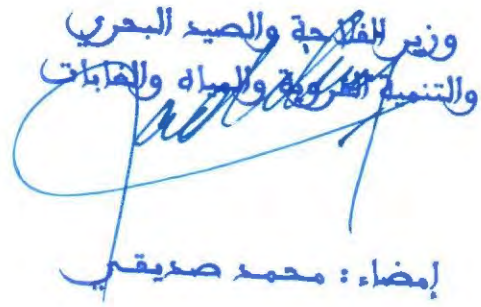 وزير الفلاحة والصيد البحري
والتنمية القروية والمياه والغابات
إمضاء : محمد صديقي